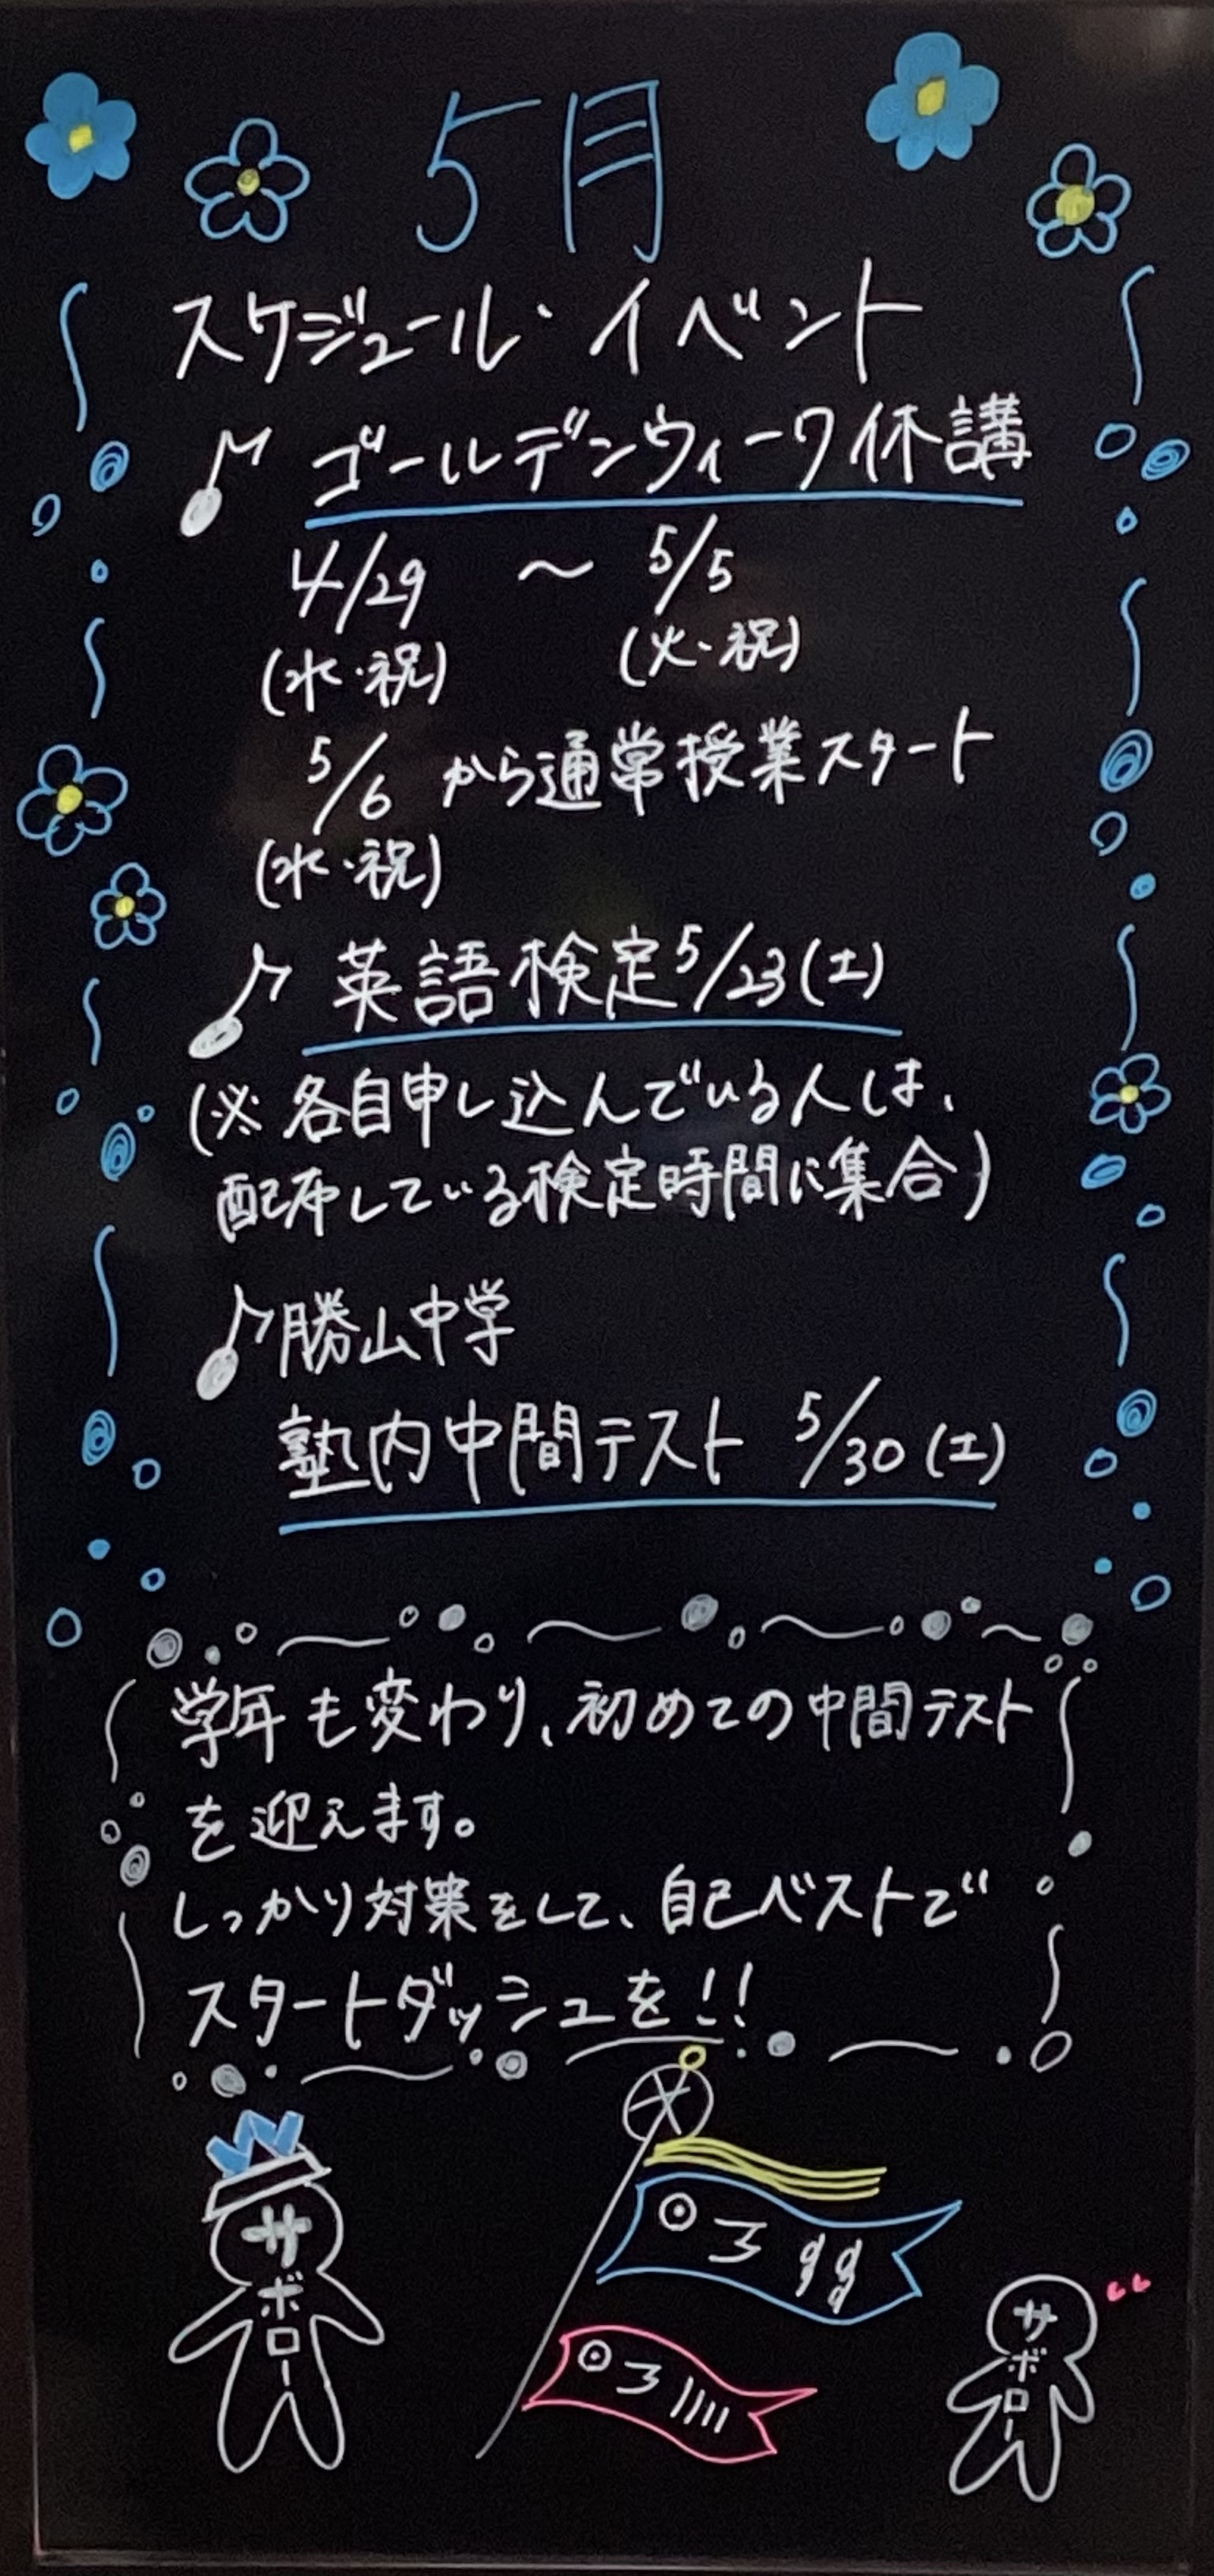 5月
スケジュール・イベント
ゴールデンウィーク休講
4/29 〜 5/5
(水・祝) (火・祝)
5/6 から通常授業スタート
(水・祝)
英語検定5/23(土)
(※各自申し込んでいる人は、
配布している検定時間に集合)
勝山中学
塾内中間テスト 5/30(土)
学年も変わり、初めての中間テスト
を迎えます。
しっかり対策をして、自己ベストで
スタートダッシュを!!
サボロー
サボロー